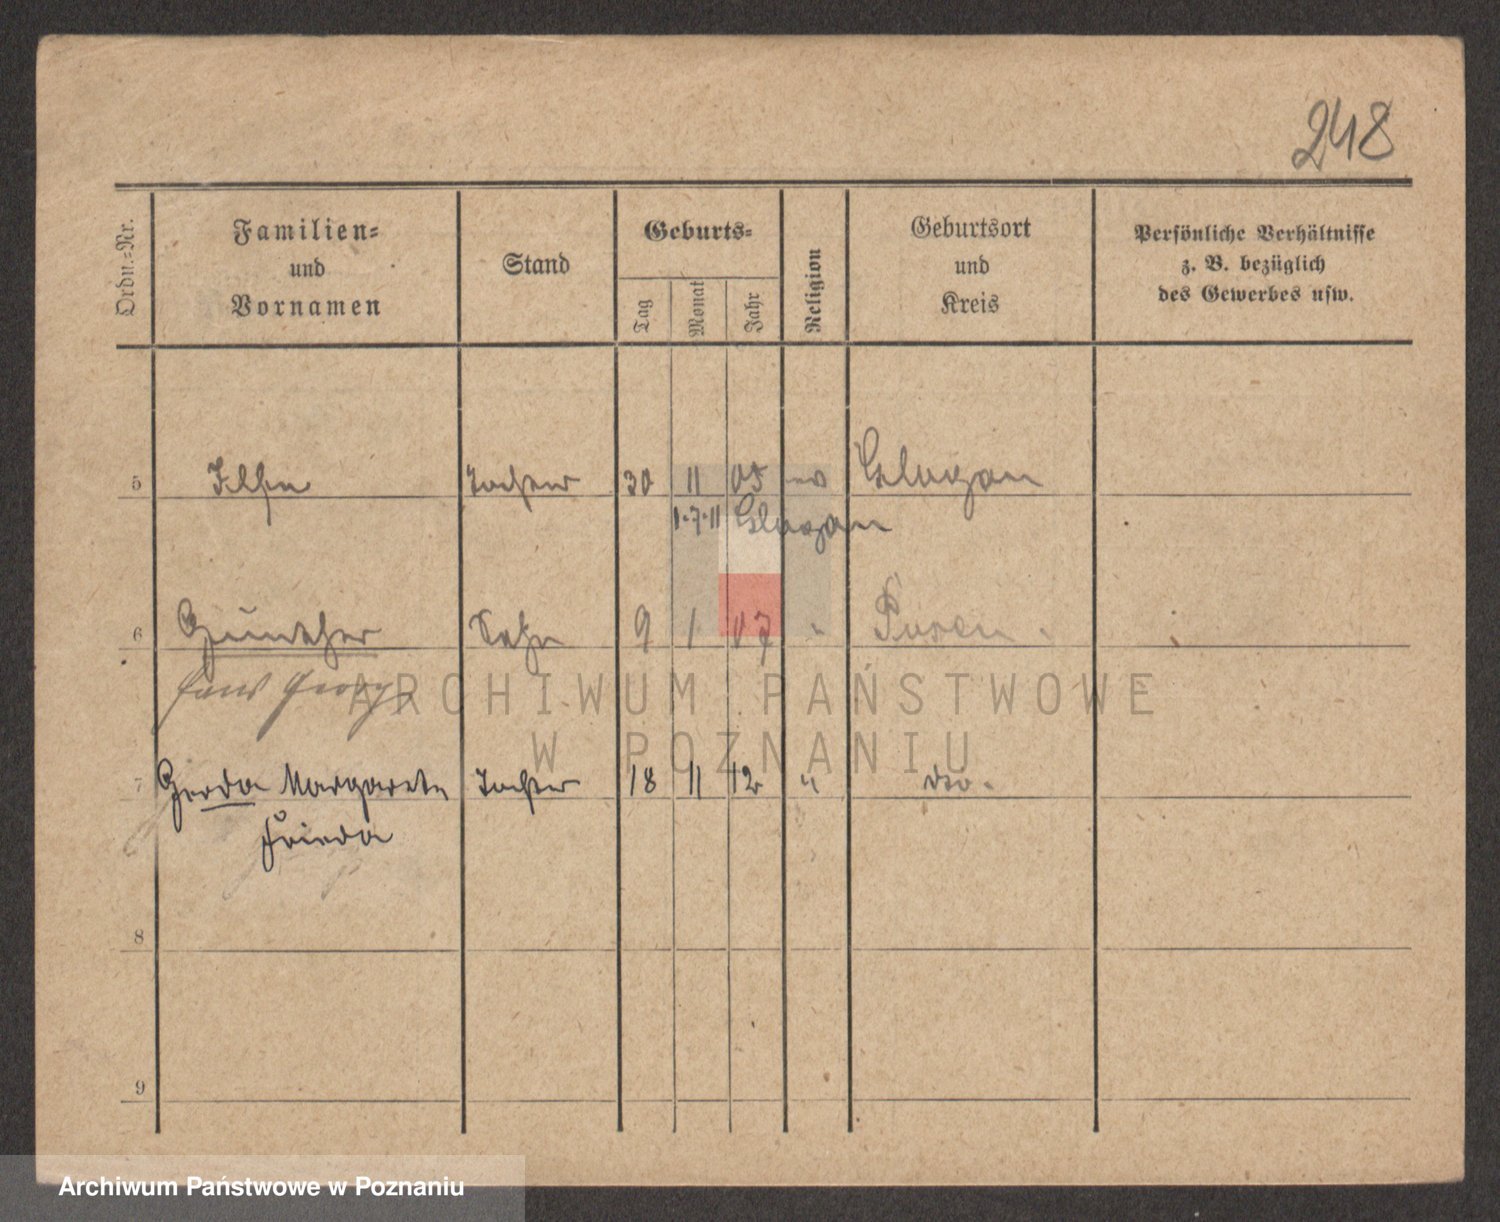 248
Ordn.-Nr.
Familien-
und
Vornamen
Stand
Geburts-
Tag
Monat
Jahr
Religion
Geburtsort
und
Kreis
Persönliche Verhältnisse
z. B. bezüglich
des Gewerbes usw.
5 Ilse Tochter 30 11 05 ev Glogau
1.7.11 Glogau
6 Günther Sohn 9 1 07 " Posen.
Hans Georg
ARCHIWUM PAŃSTWOWE
W POZNANIU
7 Gerda Margarete Tochter 18 11 12 " dto.
Frieda
8
9
Archiwum Państwowe w Poznaniu